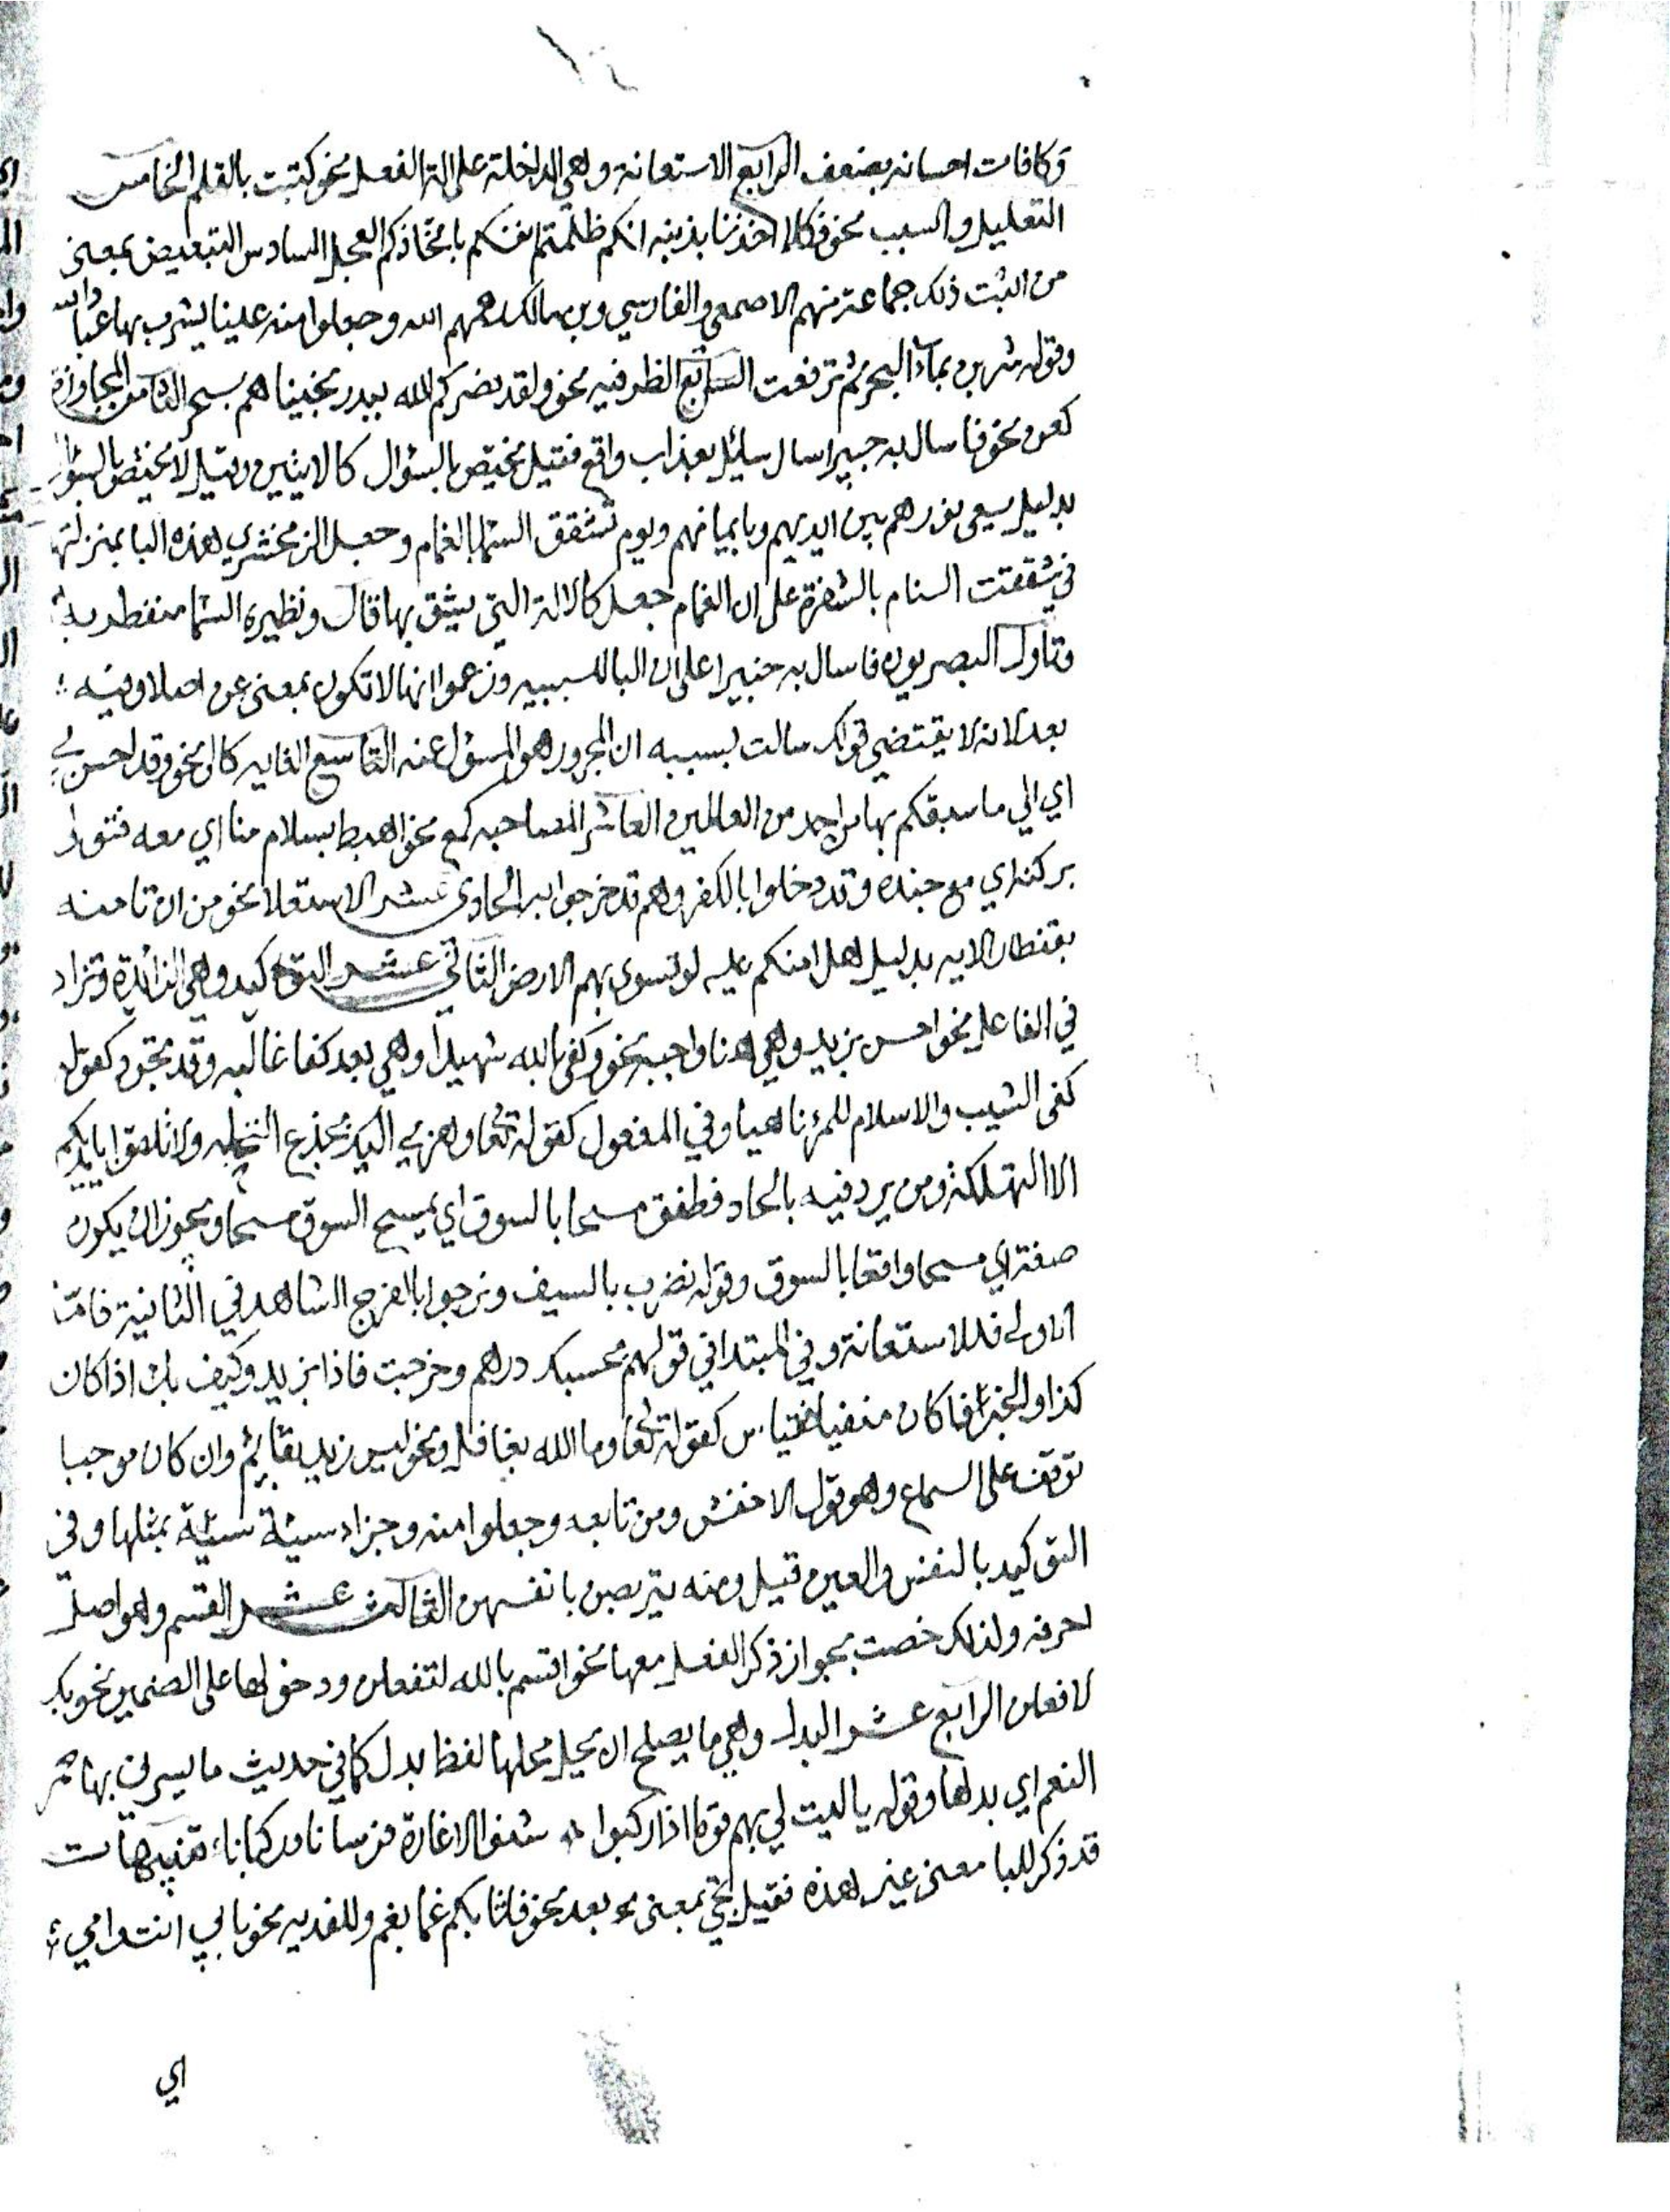 وكافات احسانه بضعف الرابع الاستعانة وهي الداخلة على الة الفعل نحو كتبت بالقلم الخامس
التعليل والسبب نحو فكلا اخذنا بذنبه انكم ظلمتم انفسكم باتخاذكم العجل السادس التبعيض بمعنى
من اثبت ذلك جماعة منهم الاصمعي والفارسي وبن مالك رحمهم الله وجعلوا منه عينا يشرب بها عباد الله
وقوله شربن بماء البحر ثم ترفعت السابع الظرفيه نحو ولقد نصركم الله ببدر نجيناهم بسحر الثامن المجاوزة
كعن نحو فاسال به خبيرا سال سايل بعذاب واقع فقيل يختص بالسؤال كالايتين وقيل لا يختص بالسؤال
بدليل يسعى نورهم بين ايديهم وبايمانهم ويوم تشقق السما بالغمام وجعل الزمخشري هذه البا بمنزلتها
في شققت السنام بالشفرة على ان الغمام جعل كالالة التي يشق بها قال ونظيره السما منفطر به
وتاول البصريون فاسال به خبيرا على ان البا للسببيه وزعموا انها لا تكون بمعنى عن اصلا وفيه
بعد لانه لا يقتضي قولك سالت بسببه ان المجرور هو المسؤل عنه التاسع الغايه كالى نحو وقد احسن بي
اي الي ما سبقكم بها من احد من العالمين العاشر المصاحبه كمع نحو اهبط بسلام منا اي معه فتولى
بركنه اي مع جنده وقد دخلوا بالكفر وهم قد خرجوا به الحادي عشر الاستعلا نحو من ان تامنه
بقنطار الايه بدليل هل امنكم عليه لو تسوى بهم الارض الثاني عشر التوكيد وهي الزائدة وتزاد
في الفاعل نحو احسن بزيد وهي هنا واجبة نحو وكفى بالله شهيدا وهي بعد كفا غالبه وقد تحذف كقوله
كفى الشيب والاسلام للمرء ناهيا وفي المفعول كقوله تعا وهزي اليك بجذع النخله ولا تلقوا بايديكم
الا التهلكة ومن يرد فيه بالحاد فطفق مسحا بالسوق اي يمسح السوق مسحا ويجوز ان يكون
صفة اي مسحا واقعا بالسوق وقوله نضرب بالسيف ونرجوا بالفرج الشاهد في الثانية فامّا
الاولى فللاستعانة وفي المبتدا في قولهم بحسبك درهم وخرجت فاذا بزيد وكيف بك اذا كان
كذا والخبر فما كان منفيا فقياس كقوله تعا وما الله بغافل ونحو ليس زيد بقايم وان كان موجبا
توقف على السماع وهو قول الاخفش ومن تابعه وجعلوا منه وجزاء سيئة سيئة بمثلها وفي
التوكيد بالنفس والعين قيل ومنه يتربصن بانفسهن الثالث عشر القسم وهو اصل
احرفه ولذلك خصت بجواز ذكر الفعل معها نحو اقسم بالله لتفعلن ودخولها على الضمير نحو بك
لافعلن الرابع عشر البدل وهي ما يصلح ان يحل محلها لفظ بدل كما في حديث ما يسرني بها حمر
النعم اي بدلها وقوله يا ليت لي بهم قوما اذا ركبوا شنوا الاغارة فرسانا وركبانا تنبيهات
قد ذكر للبا معنى غير هذه فقيل تجي بمعنى بعد نحو فاثابكم غما بغم وللفديه نحو بابي انت وامي
اي